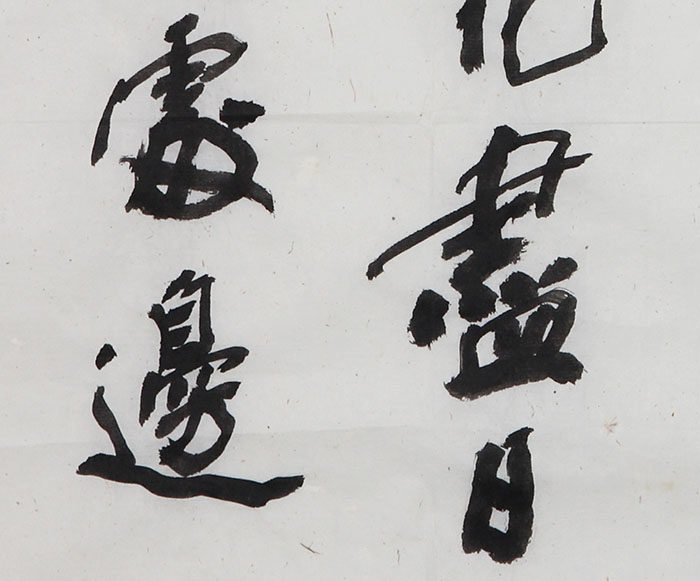 花盡日
處邊